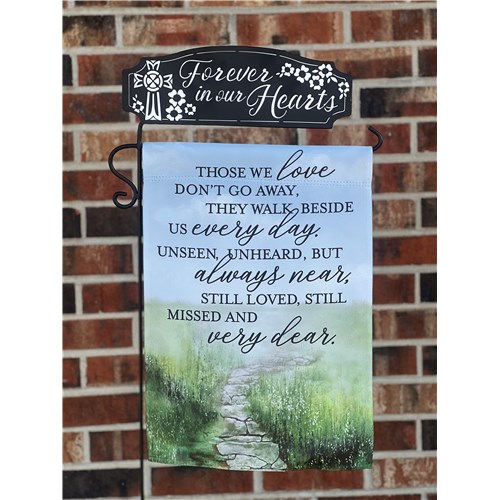 Forever
in our Hearts
THOSE WE love
DON'T GO AWAY,
THEY WALK BESIDE
US every day.
UNSEEN, UNHEARD, BUT
always near,
STILL LOVED, STILL
MISSED AND
very dear.